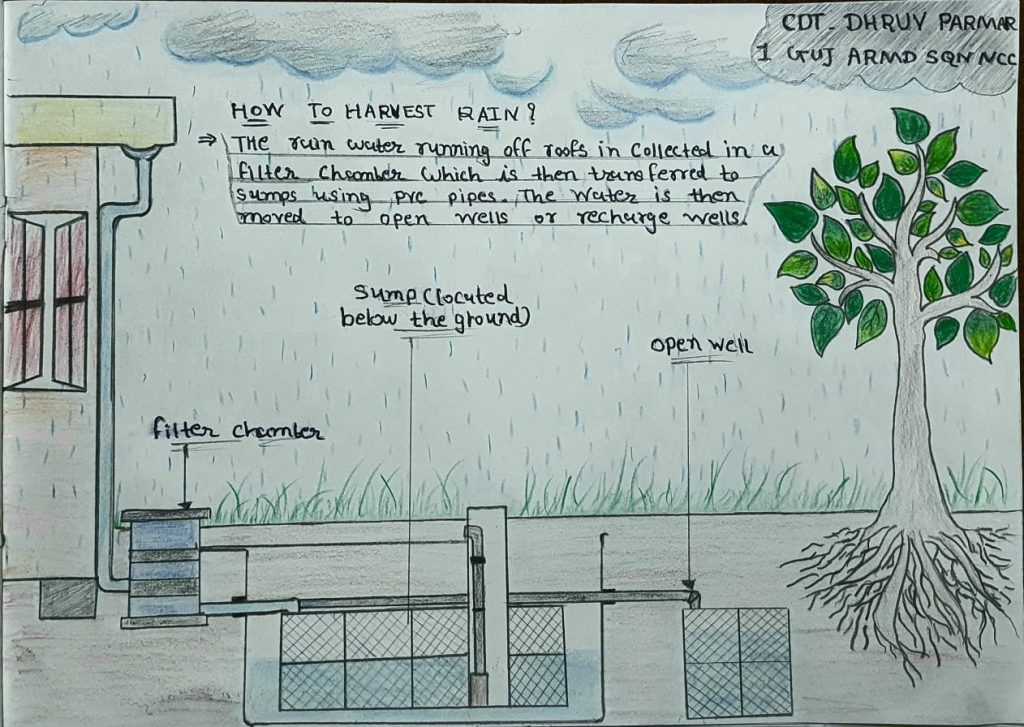 CDT- DHRUV PARMAR
1 GUJ ARMD SQN NCC
HOW TO HARVEST RAIN?
⇒ THE rain water running off roofs in collected in a
filter chamber which is then transferred to
sumps using pvc pipes. The water is then
moved to open wells or recharge wells.
Sump (located
below the ground)
open well
filter chamber